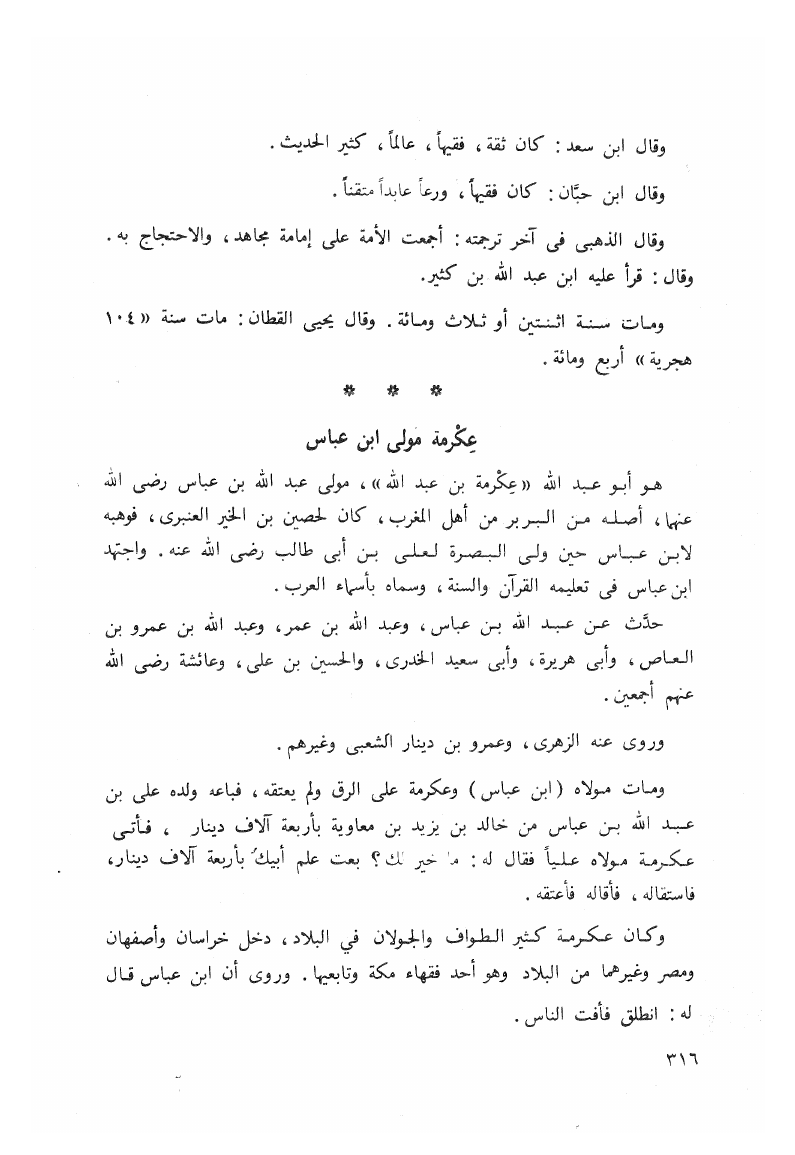 وقال ابن سعد : كان ثقة ، فقيهاً ، عالماً ، كثير الحديث .
وقال ابن حبَّان : كان فقيهاً ، ورعاً عابداً متقناً .
وقال الذهبى فى آخر ترجمته : أجمعت الأمة على إمامة مجاهد ، والاحتجاج به .
وقال : قرأ عليه ابن عبد الله بن كثير .
ومات سنة اثنتين أو ثلاث ومائة . وقال يحيى القطان : مات سنة « ١٠٤
هجرية » أربع ومائة .
* * *
عِكْرمة مولى ابن عباس
هو أبو عبد الله « عِكْرمة بن عبد الله » ، مولى عبد الله بن عباس رضى الله
عنهما ، أصله من البربر من أهل المغرب ، كان لحصين بن الخير العنبرى ، فوهبه
لابن عباس حين ولى البصرة لعلى بن أبى طالب رضى الله عنه . واجتهد
ابن عباس فى تعليمه القرآن والسنة ، وسماه بأسماء العرب .
حدَّث عن عبد الله بن عباس ، وعبد الله بن عمر ، وعبد الله بن عمرو بن
العاص ، وأبى هريرة ، وأبى سعيد الخدرى ، والحسين بن على ، وعائشة رضى الله
عنهم أجمعين .
وروى عنه الزهرى ، وعمرو بن دينار الشعبى وغيرهم .
ومات مولاه ( ابن عباس ) وعكرمة على الرق ولم يعتقه ، فباعه ولده على بن
عبد الله بن عباس من خالد بن يزيد بن معاوية بأربعة آلاف دينار ، فأتى
عكرمة مولاه علياً فقال له : ما خير لك ؟ بعت علم أبيك بأربعة آلاف دينار ،
فاستقاله ، فأقاله فأعتقه .
وكان عكرمة كثير الطواف والجولان في البلاد ، دخل خراسان وأصفهان
ومصر وغيرهما من البلاد وهو أحد فقهاء مكة وتابعيها . وروى أن ابن عباس قال
له : انطلق فأفت الناس .
٣١٦